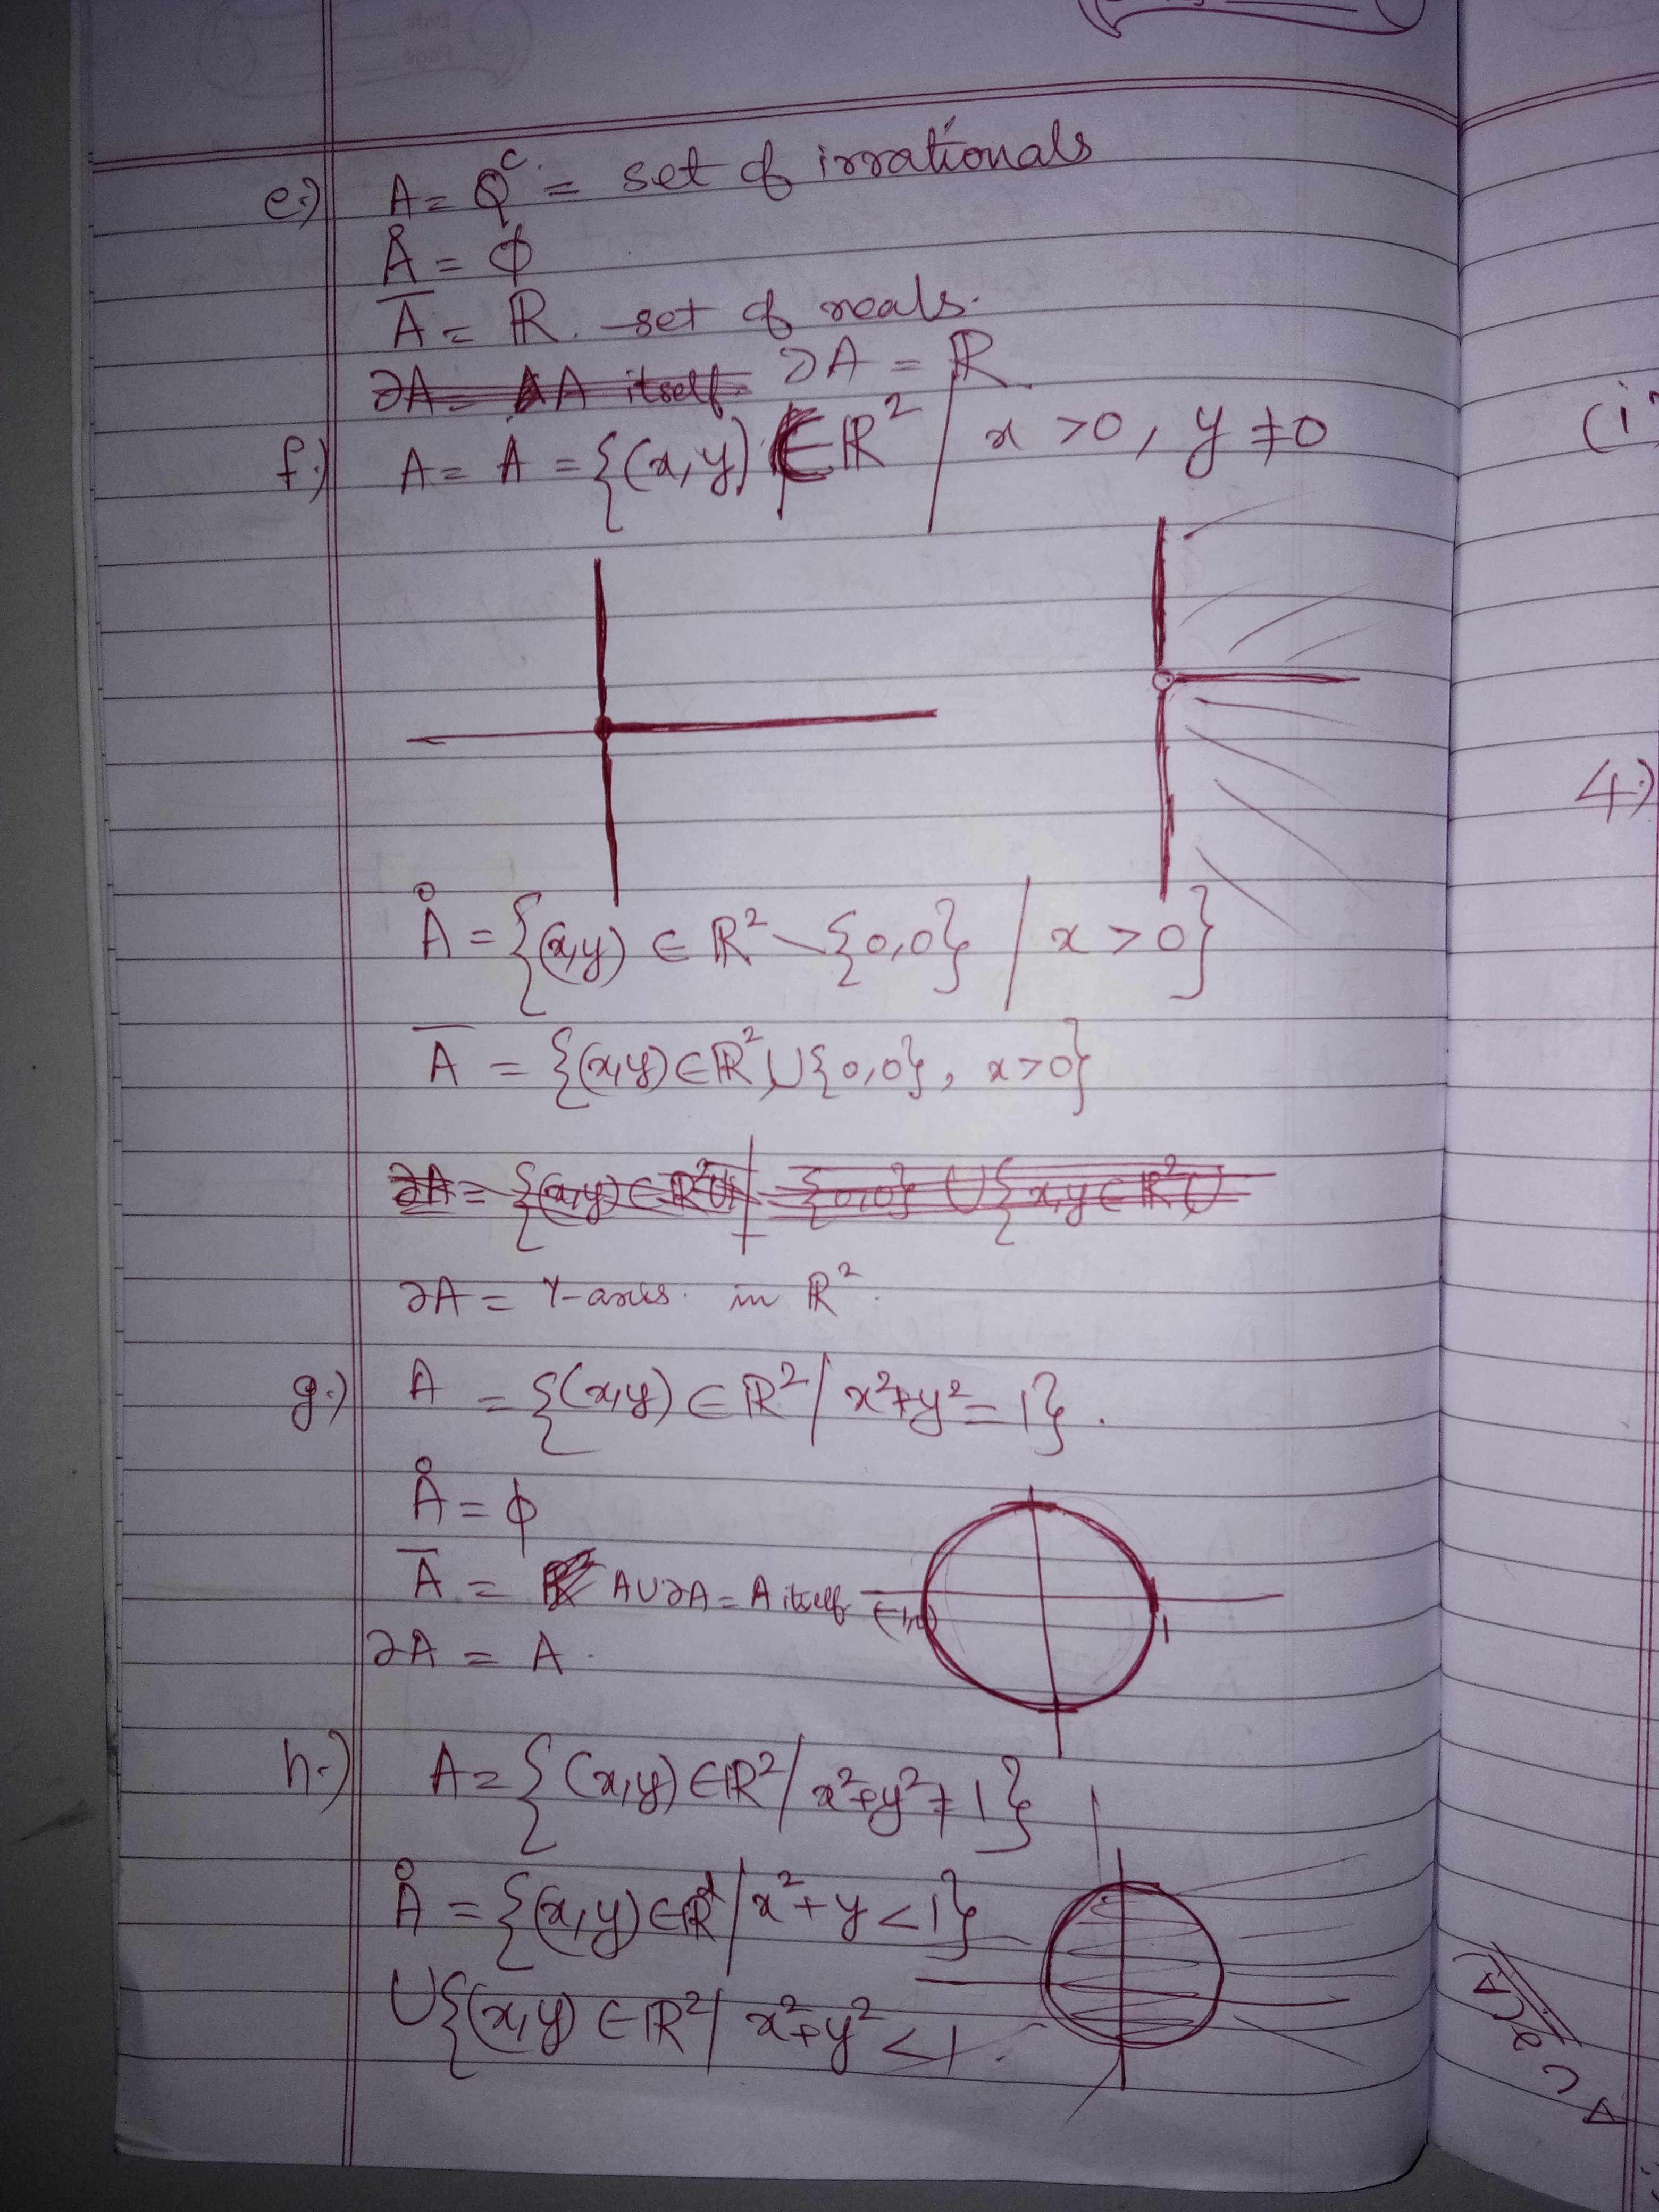 e.) A = Q^c = set of irrationals
Å = ϕ
A̅ = ℝ. set of reals.
∂A = A itself. ∂A = ℝ
f.) A = A = {(x,y) ∈ ℝ² / x > 0, y ≠ 0
Å = {(x,y) ∈ ℝ² \ {0,0} / x > 0}
A̅ = {(x,y) ∈ ℝ² ∪ {0,0}, x > 0}
∂A = {(x,y) ∈ ℝ² {0,0} ∪ {x,y ∈ ℝ² ∪
∂A = Y-axis. in ℝ².
g.) A = {(x,y) ∈ ℝ² / x² + y² = 1}.
Å = ϕ
A̅ = A ∪ ∂A = A itself.
(-1,0)
1
∂A = A.
h.) A = {(x,y) ∈ ℝ² / x² + y² ≠ 1}
Å = {(x,y) ∈ ℝ² / x² + y < 1}
∪ {(x,y) ∈ ℝ² / x² + y² < 1.
(i)
4.)